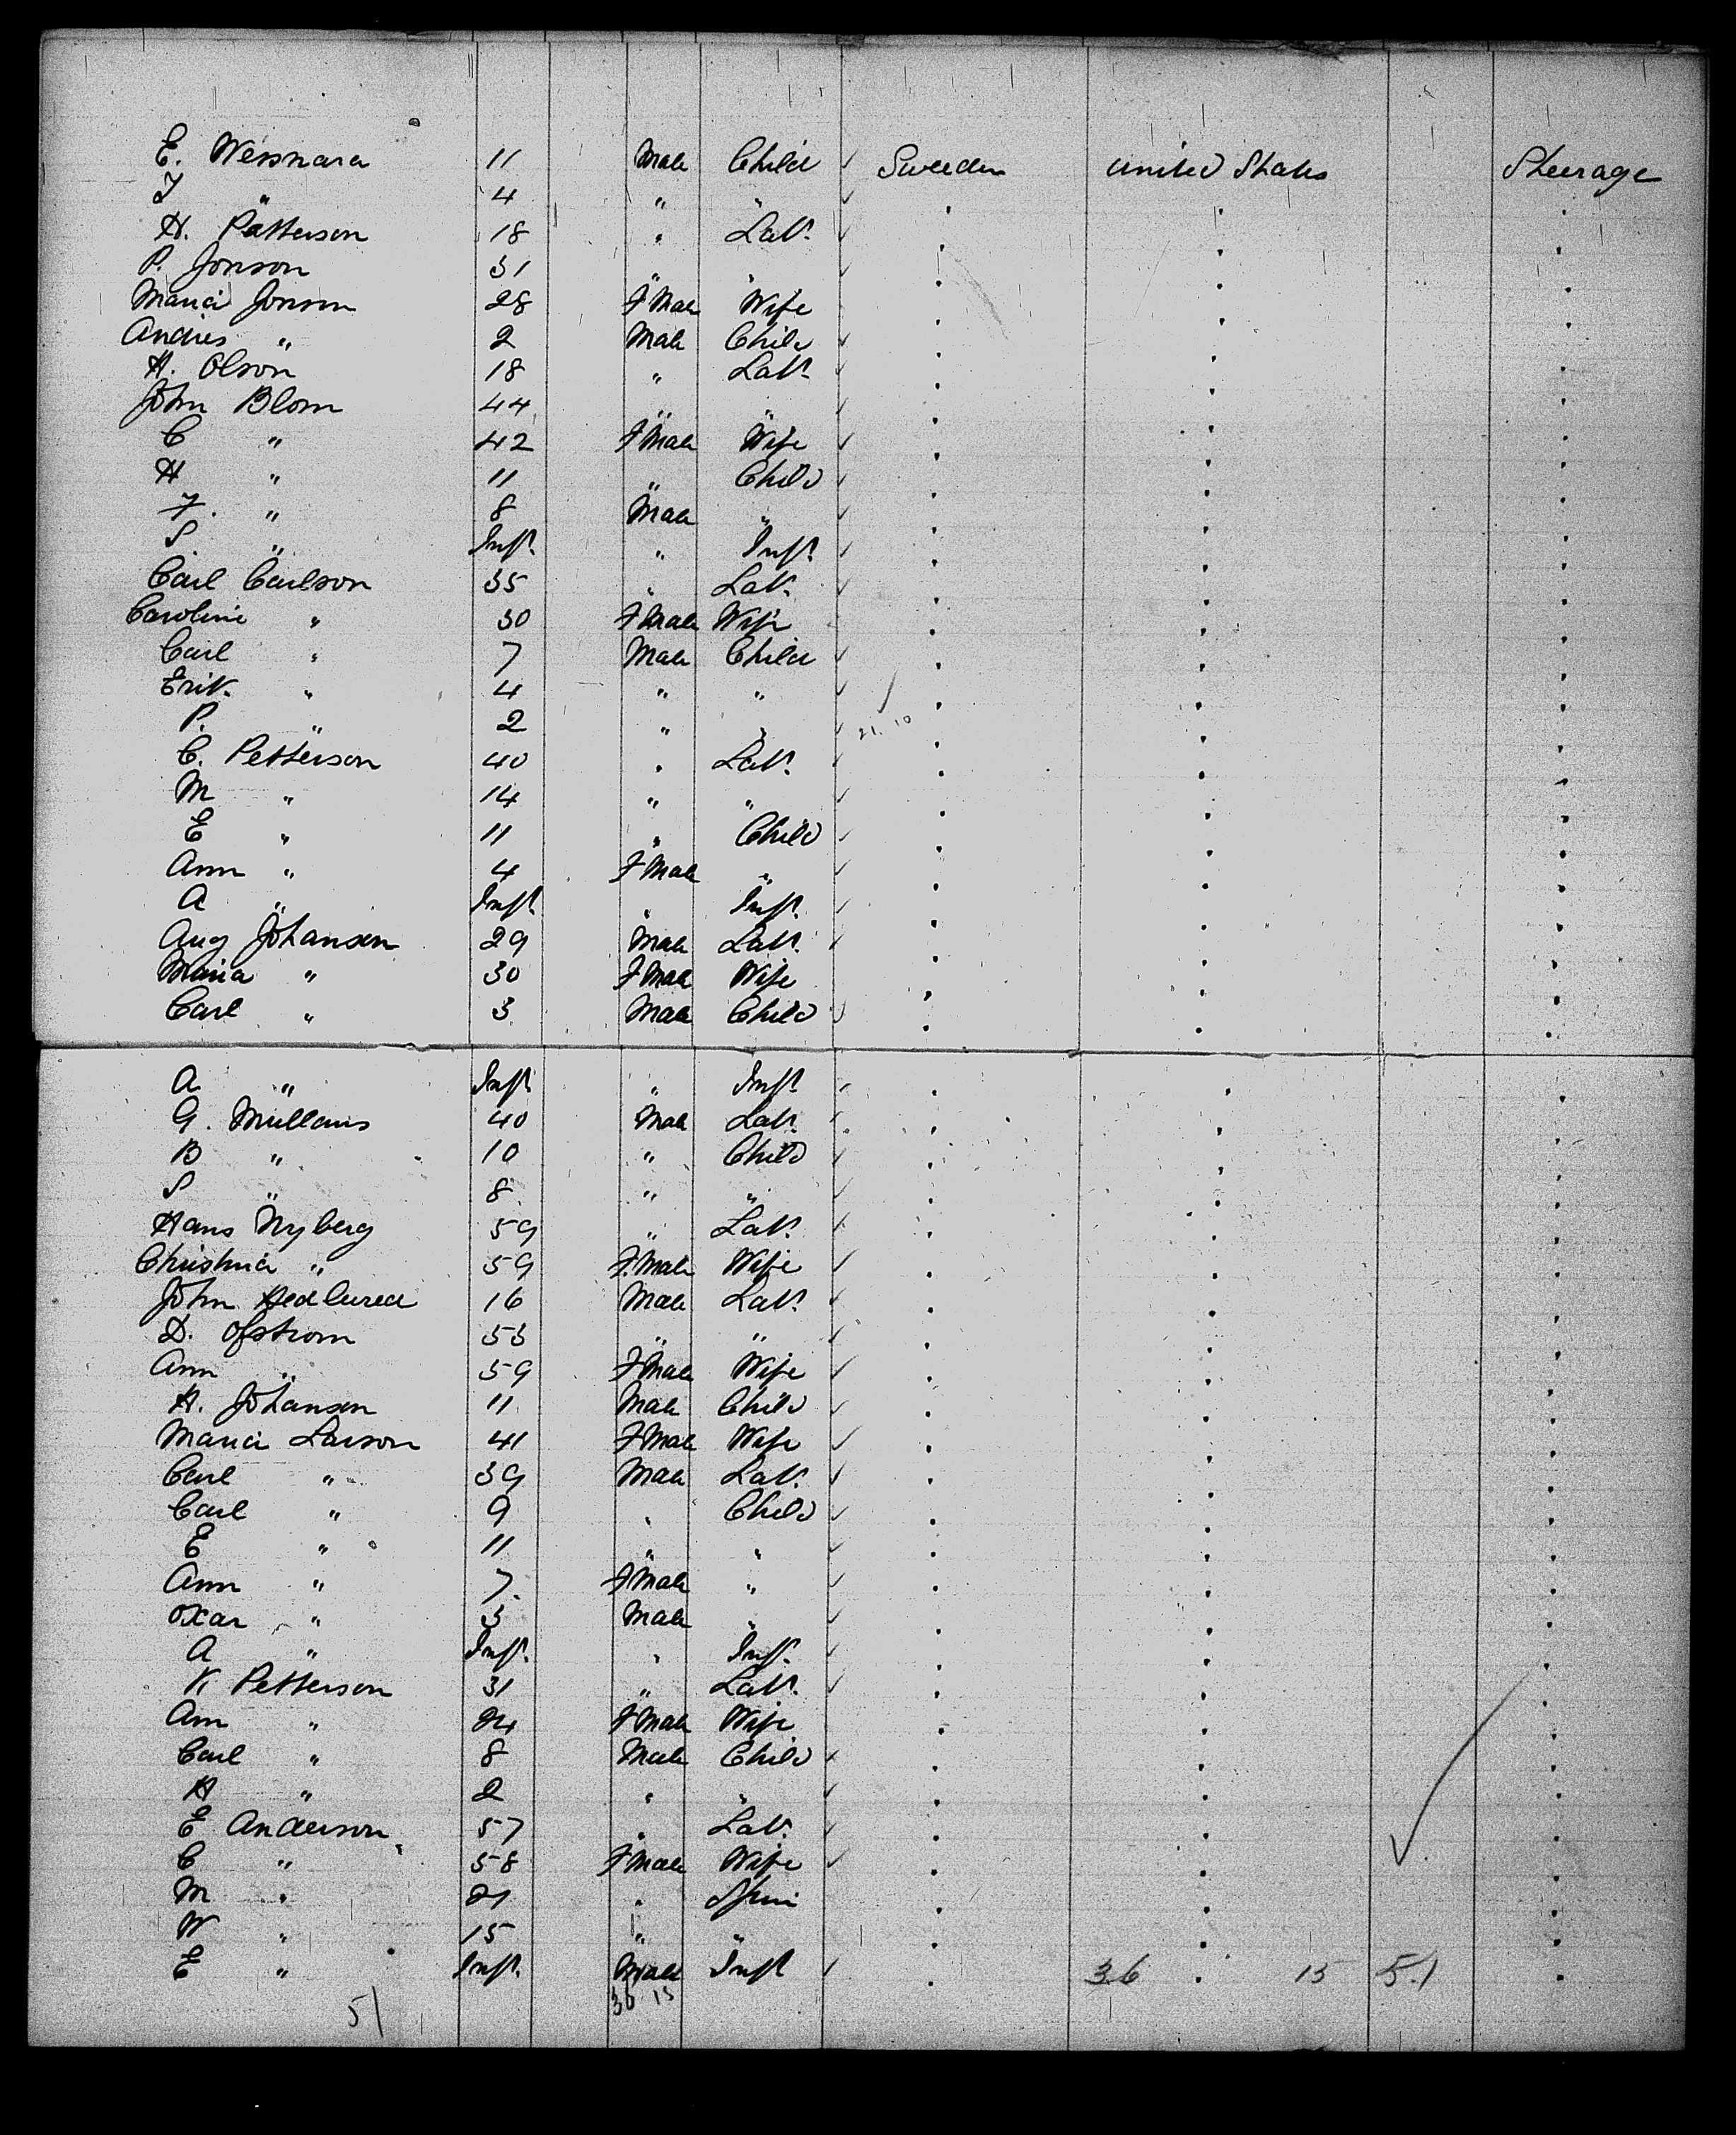 E. Wessnara 11 Male Child ✓ Sweden United States Steerage
J " 4 " " ✓ " " "
H. Patterson 18 " Lab. ✓ " " "
P. Jonson 31 " " ✓ " " "
Maria Jonson 28 F Male Wife " " "
Andres " 2 Male Child ✓ " " "
H. Olson 18 " Lab. ✓ " " "
John Blom 44 " " ✓ " " "
C " 42 F Male Wife ✓ " " "
H " 11 " Child ✓ " " "
F. " 8 Male " ✓ " " "
S " Inft. " Inft. ✓ " " "
Carl Carlson 35 " Lab. ✓ " " "
Caroline " 30 F Male Wife ✓ " " "
Carl " 7 Male Child ✓ " " "
Erik. " 4 " " ✓ " " "
P. " 2 " " ✓ 21. 10 " " "
C. Petterson 40 " Lab. ✓ " " "
M " 14 " " ✓ " " "
E " 11 " Child ✓ " " "
Ann " 4 F Male " ✓ " " "
A " Inft. " Inft. ✓ " " "
Aug Johansen 29 Male Lab. ✓ " " "
Maria " 30 F Male Wife " " "
Carl " 3 Male Child ✓ " " "
A " Inft. " Inft. ✓ " " "
G. Mullans 40 Male Lab. ✓ " " "
B " 10 " Child ✓ " " "
S " 8 " " ✓ " " "
Hans Nyberg 59 " Lab. ✓ " " "
Christina " 59 F. Male Wife ✓ " " "
John 16 Male Lab. ✓ " " "
D. Ofstrom 53 " " ✓ " " "
Ann " 59 F Male Wife ✓ " " "
H. Johansen 11 Male Child ✓ " " "
Maria Larson 41 F Male Wife ✓ " " "
Carl " 39 Male Lab. ✓ " " "
Carl " 9 " Child ✓ " " "
E " 11 " " ✓ " " "
Ann " 7 F Male " ✓ " " "
Oxar " 3 Male " ✓ " " "
A " Inft. " Inft. ✓ " " "
K Petterson 31 " Lab. ✓ " " "
Ann " 24 F Male Wife " " "
Carl " 8 Male Child ✓ " " "
H " 2 " " ✓ " " "
E Anderson 57 " Lab. ✓ " " "
C " 58 F Male Wife ✓ " " "
M " 21 " Spin " " "
W " 15 " " " " "
E " Inft. Male Inft ✓ " 36 " 15 51 "
51 36 15